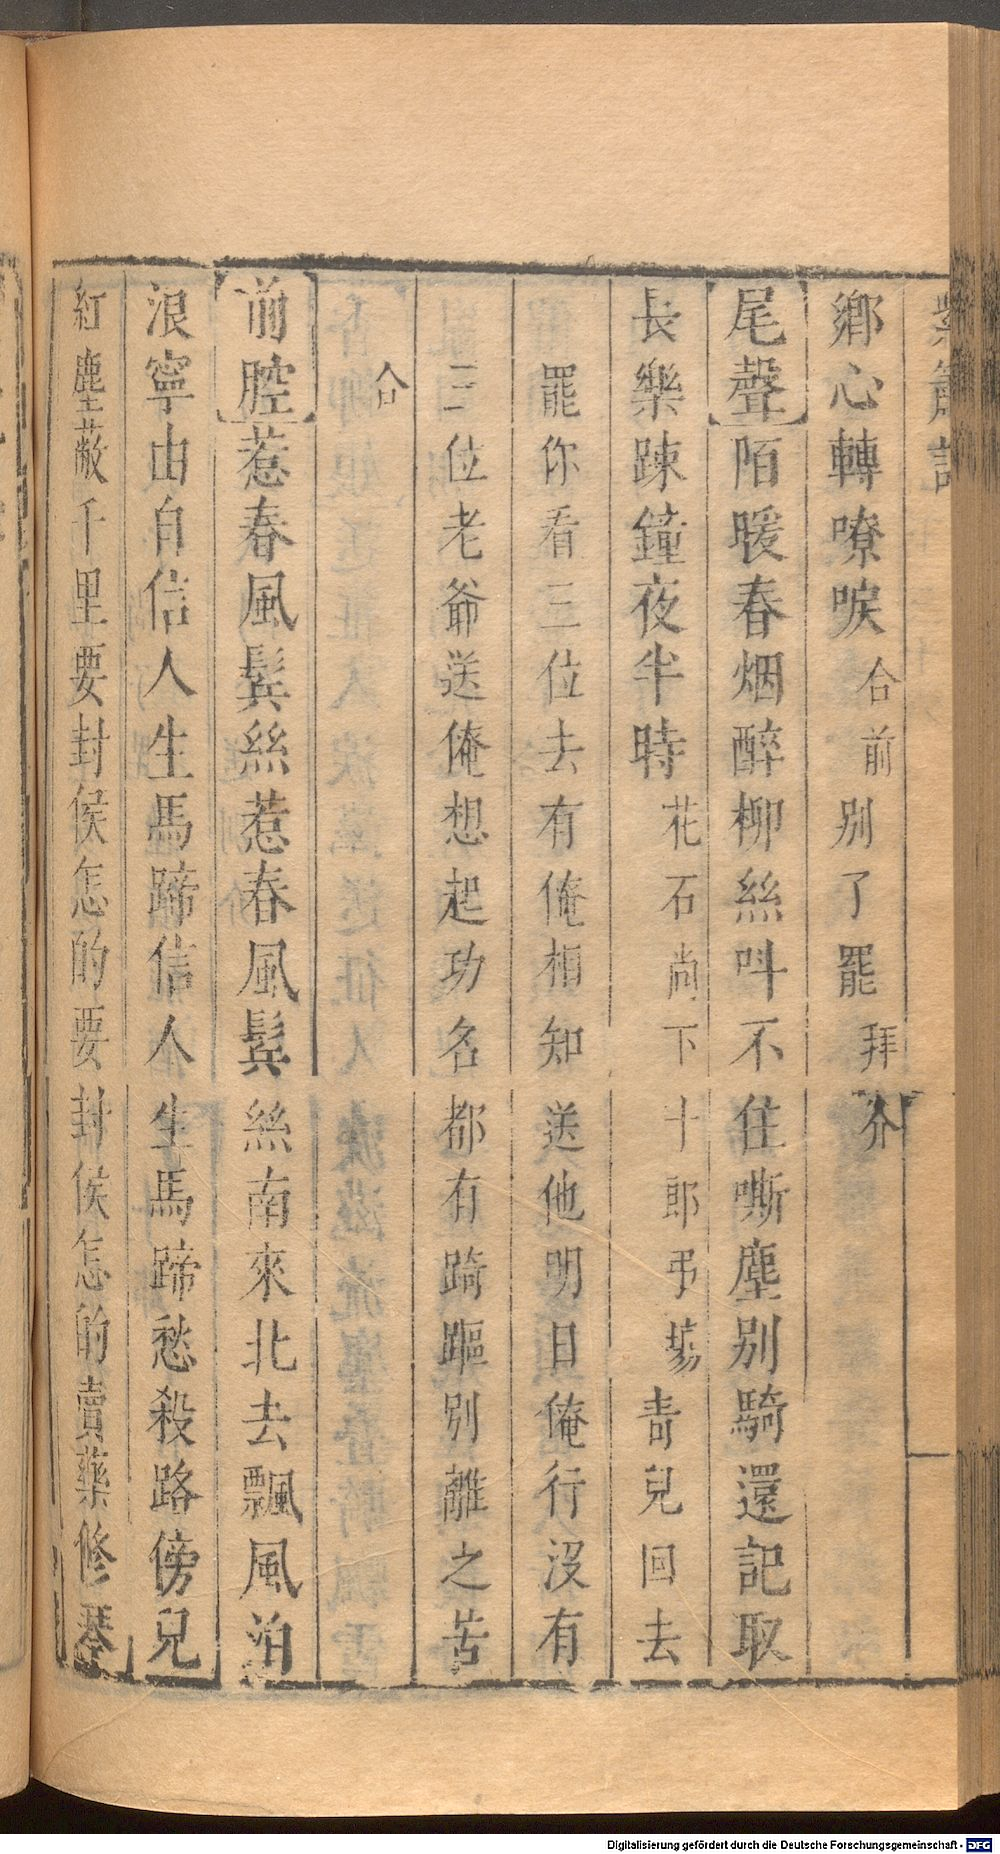 紫簫記
鄉心轉嘹唳合前別了罷拜介
尾聲陌暖春烟醉柳絲呌不住嘶塵別騎還記取
長樂踈鐘夜半時花石尚下十郎弔塲青兒回去
罷你看三位去有俺相知送他明日俺行沒有
三位老爺送俺想起功名都有踦䠓別離之苦
合
前腔惹春風鬂絲惹春風鬂絲南來北去飄風泊
浪寧由自信人生馬蹄信人生馬蹄愁殺路傍兒
紅塵蔽千里要封侯怎的要封侯怎的賣藥修琴
Digitalisierung gefördert durch die Deutsche Forschungsgemeinschaft - DFG